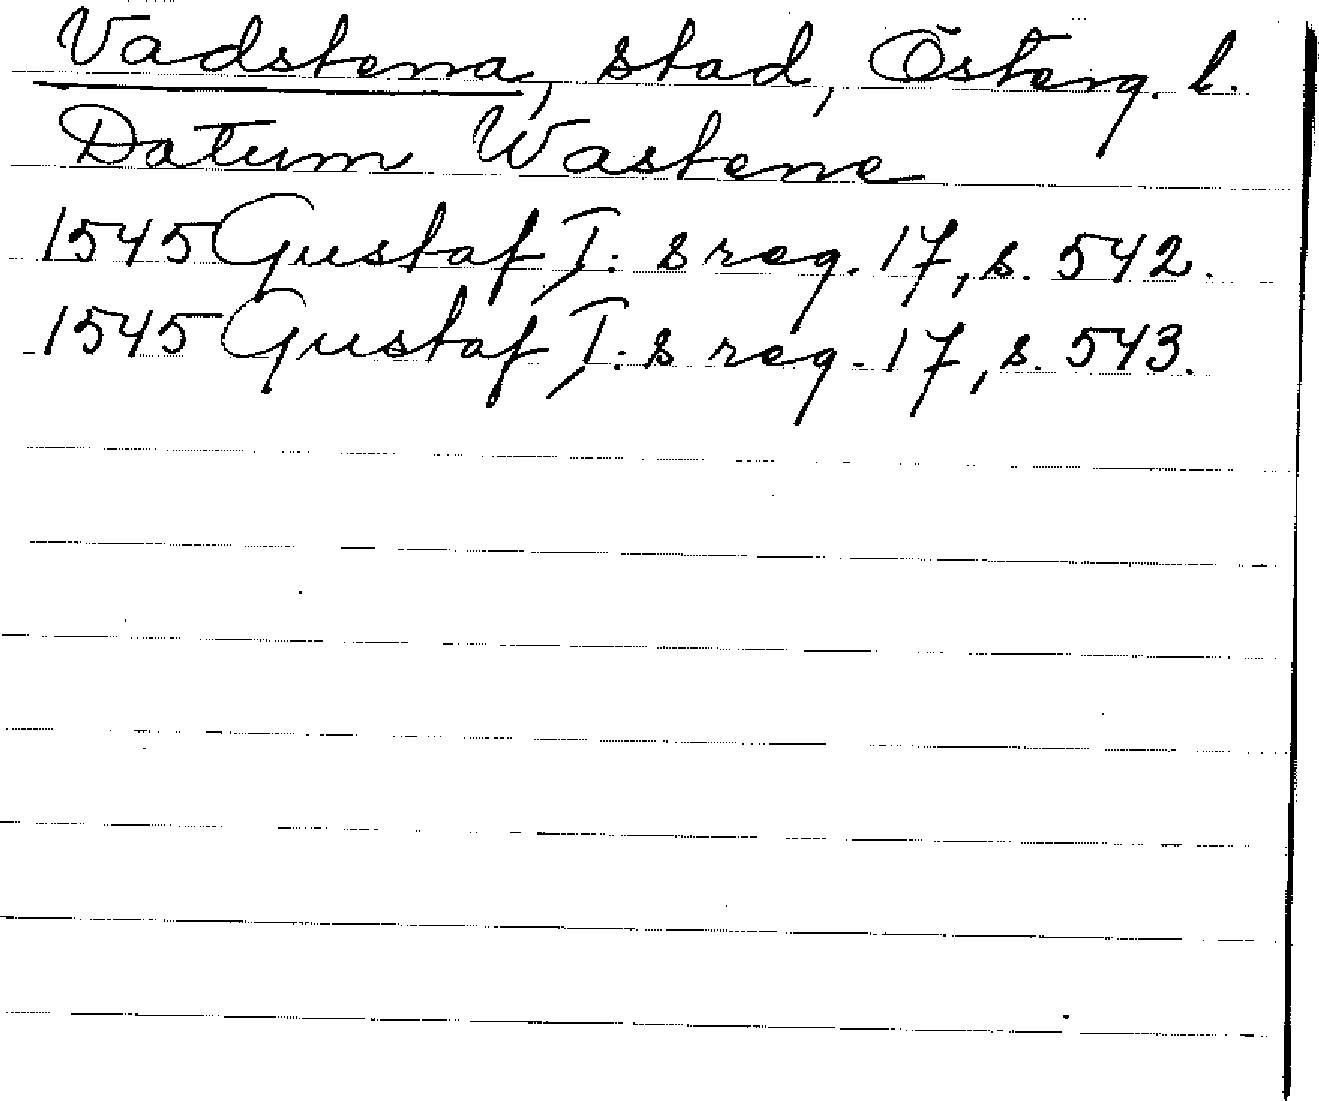 Vadstena, stad, Österg. l.
Datum Wastene
1545 Gustaf I:s reg. 17, s. 542.
1545 Gustaf I:s reg. 17, s. 543.